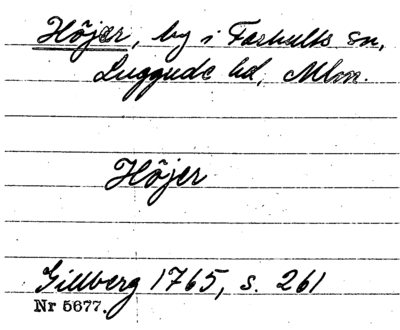 Höjer, by i Farhults sn,
Luggude hd, Mlm.
Höjer
Gillberg 1765, s. 261
Nr 5677.